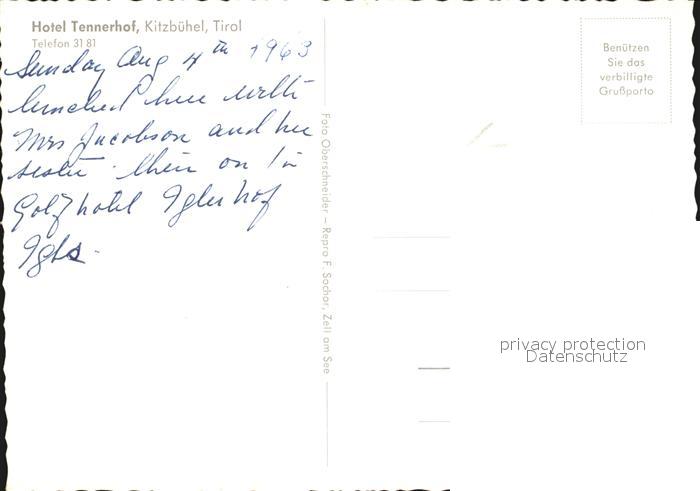 Hotel Tennerhof, Kitzbühel, Tirol
Telefon 31 81
Sunday Aug 4th 1963
lunched here with
Mrs Jacobson and her
sister. then on to
Golf hotel Iglerhof
Igls.
Foto Oberschneider – Repro F. Sochor, Zell am See
Benützen
Sie das
verbilligte
Grußporto
privacy protection
Datenschutz